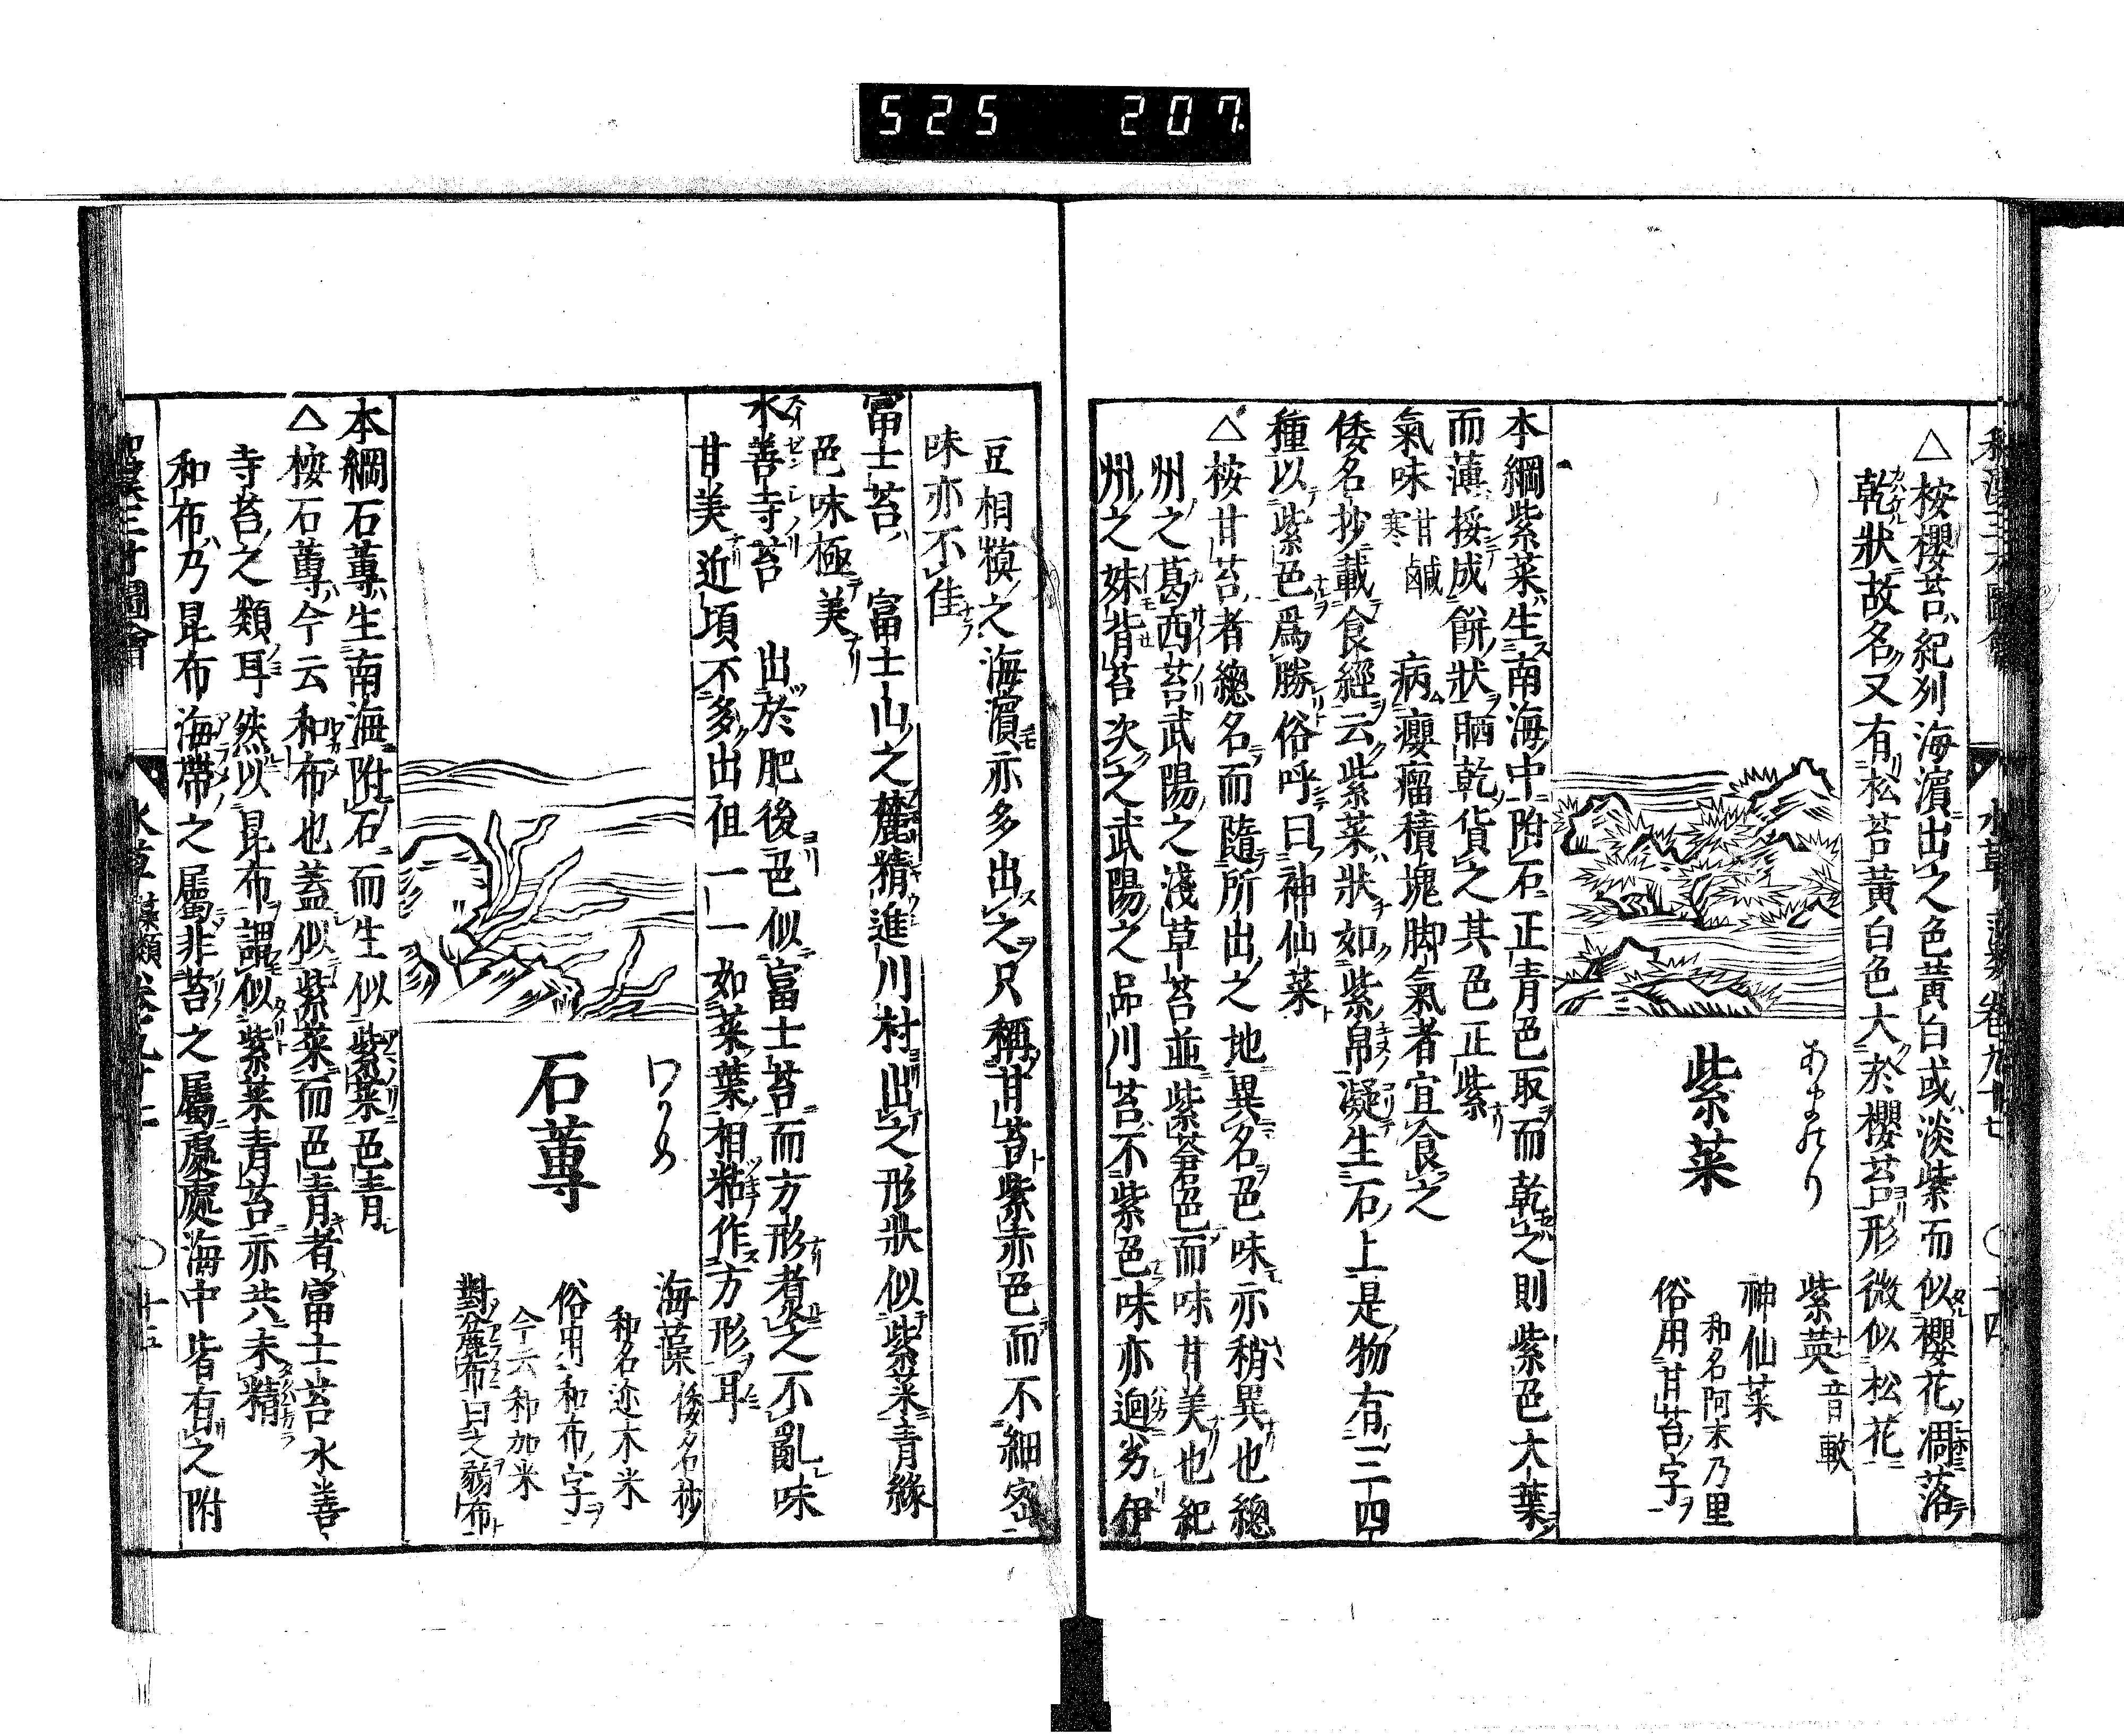 525 207
和漢三才圖會 水草 藻類 卷九十七 〇十四
△按櫻苔紀州海濵出之色黄白或淡紫而似櫻花凋落
乾狀故名又有松苔黄白色大於櫻苔形微似松花
あまのり
紫菜
紫英 音軟
神仙菜
和名阿末乃里
俗用甘苔字
本綱紫菜生南海中附石正青色取而乾之則紫色大葉
而薄挼成餅狀晒乾貨之其色正紫
氣味 甘鹹寒 病癭瘤積塊脚氣者宜食之
倭名抄載食經云紫菜狀如紫帛凝生石上是物有三四
種以紫色爲勝俗呼曰神仙菜
△按甘苔者總名而隨所出之地異名色味亦稍異也總
州之葛西苔武陽之淺草苔並紫蒼色而味甘美也紀
州之妹背苔次之武陽之品川苔不紫色味亦迥劣伊
豆相模之海濵亦多出之只稱甘苔紫赤色而不細宻
味亦不佳
富士苔 富士山之麓精進川村出之形狀似紫菜青緑
色味極美
水善寺苔 出於肥後色似富士苔而方形煮之不亂味
甘美近頃不多出但一一如菜葉相粘作方形耳
わかめ
石蓴
海藻 倭名抄
和名迩木米
俗用和布字
今云和加米
對麁布曰之弱布
本綱石蓴生南海附石而生似紫菜色青
△按石蓴今云和布也蓋似紫菜而色青者富士苔水善
寺苔之類耳然以昆布謂似紫菜青苔亦共未精
和布乃昆布海帶之屬非苔之屬處處海中皆有之附
和漢三才圖會 水草 藻類 卷九十七 〇十五